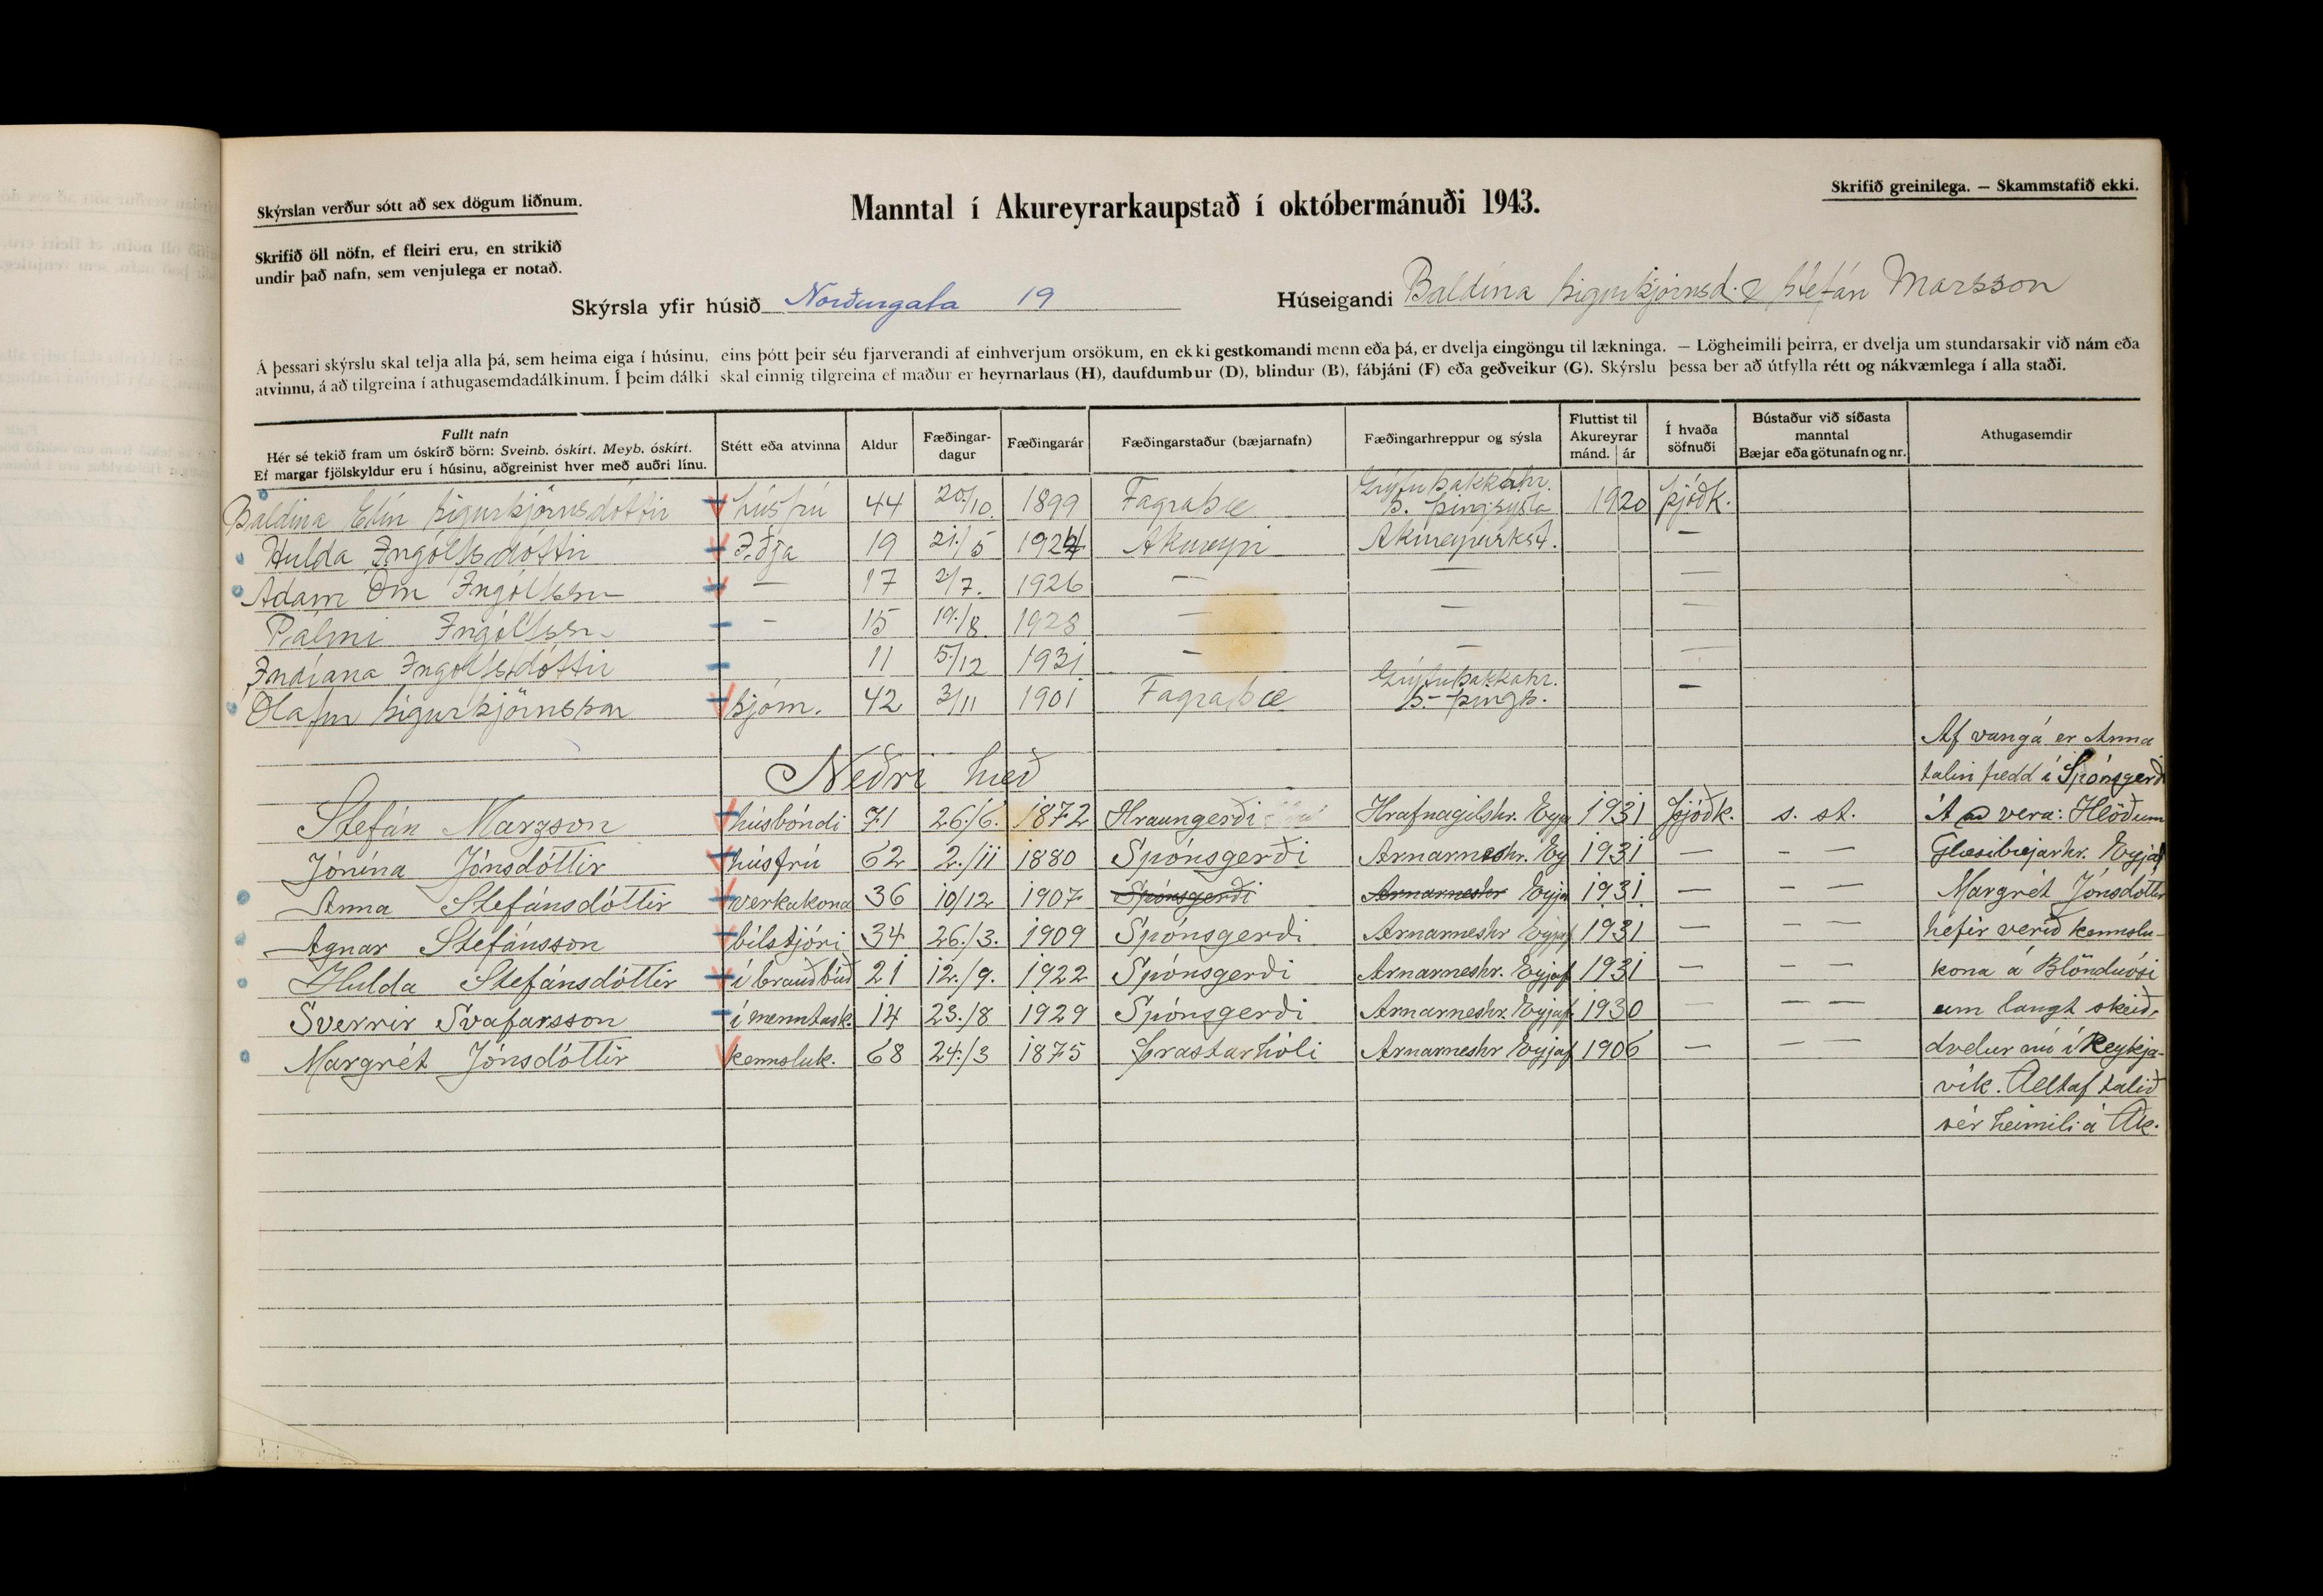 Skýrslan verður sótt að sex dögum liðnum.
Manntal í Akureyrarkaupstað í októbermánuði 1943.
Skrifið greinilega. — Skammstafið ekki.
Skrifið öll nöfn, ef fleiri eru, en strikið
undir það nafn, sem venjulega er notað.
Skýrsla yfir húsið Norðurgata 19
Húseigandi Baldína Sigurbjörnsd. & Stefán Marsson
Á þessari skýrslu skal telja alla þá, sem heima eiga í húsinu, eins þótt þeir séu fjarverandi af einhverjum orsökum, en ekki gestkomandi menn eða þá, er dvelja eingöngu til lækninga. — Lögheimili þeirra, er dvelja um stundarsakir við nám eða
atvinnu, á að tilgreina í athugasemdadálkinum. Í þeim dálki skal einnig tilgreina ef maður er heyrnarlaus (H), daufdumbur (D), blindur (B), fábjáni (F) eða geðveikur (G). Skýrslu þessa ber að útfylla rétt og nákvæmlega í alla staði.
Fullt nafn
Hér sé tekið fram um óskírð börn: Sveinb. óskírt. Meyb. óskírt.
Ef margar fjölskyldur eru í húsinu, aðgreinist hver með auðri línu.
Stétt eða atvinna
Aldur
Fæðingar-
dagur
Fæðingarár
Fæðingarstaður (bæjarnafn)
Fæðingarhreppur og sýsla
Fluttist til
Akureyrar
mánd. ár
Í hvaða
söfnuði
Bústaður við síðasta
manntal
Bæjar eða götunafn og nr.
Athugasemdir
Baldína Elín Sigurbjörnsdóttir húsfrú 44 20./10. 1899 Fagrabæ Grýtubakkahr. S. Þingsýsla 1920 Þjóðk.
Hulda Ingólfsdóttir Iðja 19 21./5 1924 Akureyri Akureyrarkst. —
Adam Örn Ingólfsson — 17 2/7. 1926 — — —
Pálmi Ingólfsson - 15 19./8. 1928 — — —
Indíana Ingólfsdóttir 11 5./12 1931 — — —
Ólafur Sigurbjörnsson sjóm. 42 3/11 1901 Fagrabæ Grýtubakkahr. S.-Þings. —
Neðri hæð
Stefán Marzson húsbóndi 71 26./6. 1872 Hraungerði Hrafnagilshr. Eyja 1931 Þjóðk. s. st.
Jónína Jónsdóttir húsfrú 62 2./11 1880 Spónsgerði Arnarneshr. Ey 1931 — - —
Anna Stefánsdóttir verkakona 36 10/12 1907 Spónsgerði Arnarneshr Eyja 1931 — - —
Agnar Stefánsson bílstjóri 34 26./3. 1909 Spónsgerði Arnarneshr Eyjaf 1931 — - —
Hulda Stefánsdóttir í brauðbúð 21 12./9. 1922 Spónsgerði Arnarneshr. Eyjaf 1931 — - —
Sverrir Svafarsson í menntask. 14 23./8 1929 Spónsgerði Arnarneshr. Eyjaf 1930 — — —
Margrét Jónsdóttir kennsluk. 68 24./3 1875 Þrastarhóli Arnarneshr Eyjaf 1906 — — —
Af vangá er Anna
talin fædd í Spónsgerði
Á að vera: Hlöðum
Glæsibæjarhr. Eyjaf
Margrét Jónsdóttir
hefir verið kennslu-
kona á Blönduósi
um langt skeið,
dvelur nú í Reykja-
vík. Alltaf talið
sér heimili á Ak.